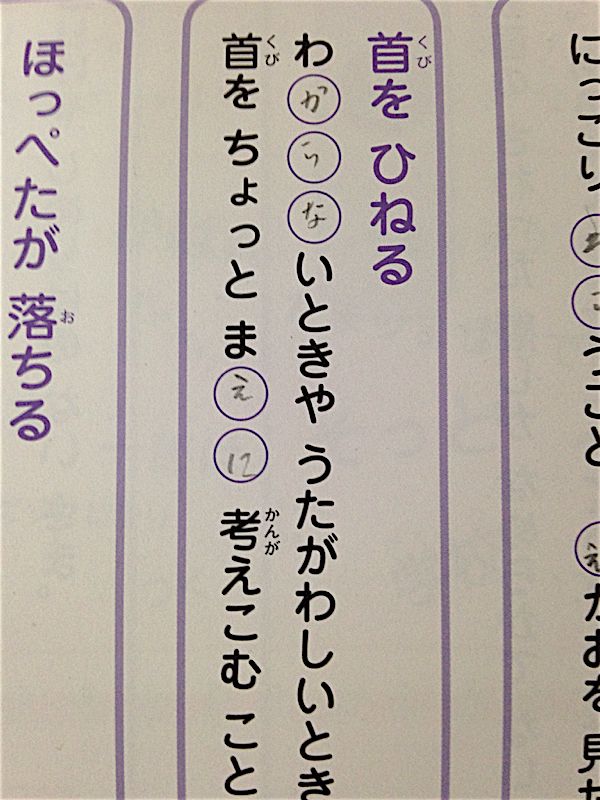 にっこり
うこと
かおを 見
首を ひねる
くび
わからないときや うたがわしいとき
首を ちょっと まえに 考えこむ こと
くび
かんが
ほっぺたが 落ちる
お